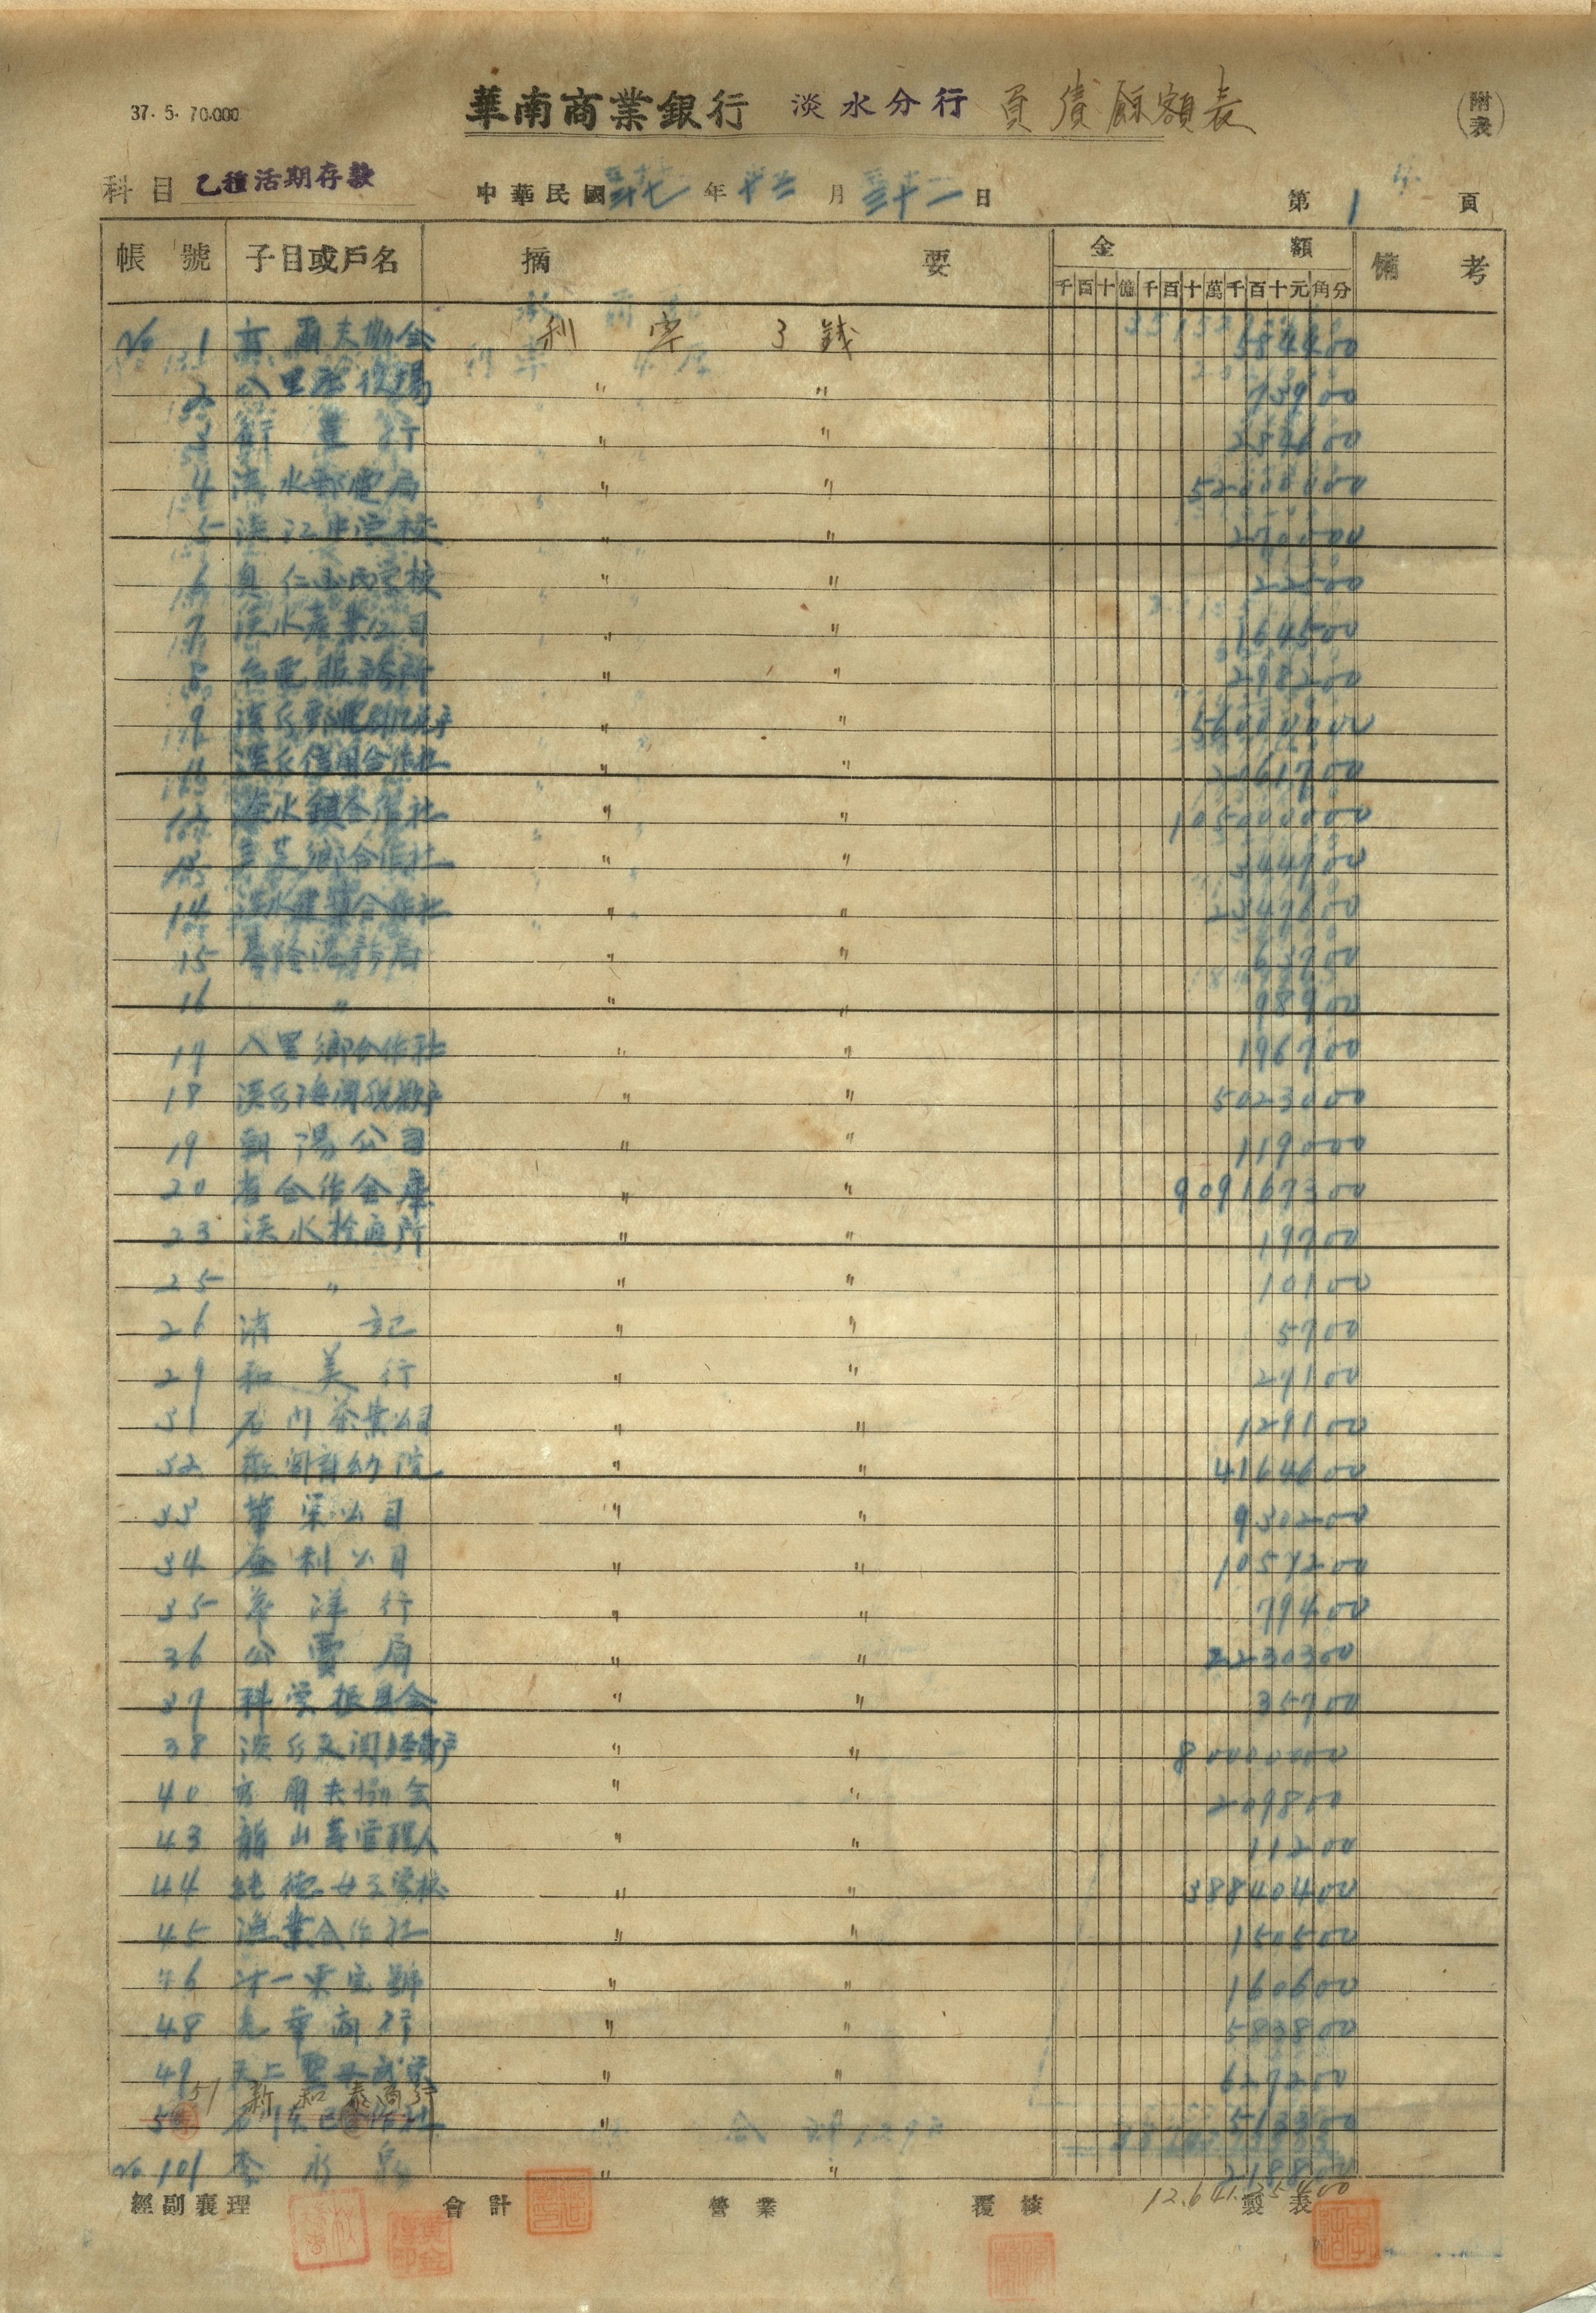 37. 5. 70.000
華南商業銀行 淡水分行 負債餘額表 (附表)
科目 乙種活期存款 中華民國三十七年十二月三十一日 第1頁
帳號 子目或戶名 摘要 金額 備考
千百十億千百十萬千百十元角分
No 1 高爾夫協会 利率 3 錢 584400
2 八里庄役場 〃 〃 73900
3 新豊行 〃 〃
4 淡水郵電局 〃 〃 52000000
5 淡江中学校 〃 〃 270000
6 興仁国民学校 〃 〃 22500
7 淡水産業公司 〃 〃 164500
8 台電服務所 〃 〃 298200
9 〃 〃 56000000
11 淡水信用合作社 〃 〃 2061700
12 淡水鎮合作社 〃 〃 105000000
13 三芝鄉合作社 〃 〃 344700
14 淡水建築合作社 〃 〃 2347600
15 基隆港務局 〃 〃 63700
16 〃 〃 〃 98900
17 八里鄉合作社 〃 〃 196700
18 淡水海関税款戶 〃 〃 5023000
19 朝陽公司 〃 〃 119000
20 省合作金庫 〃 〃 909167300
23 淡水檢疫所 〃 〃 19700
25 〃 〃 〃 10100
26 清記 〃 〃 5700
29 和美行 〃 〃 29100
31 石門茶業公司 〃 〃 129100
32 〃 〃 4164600
33 華栄公司 〃 〃 930200
34 益利公司 〃 〃 1057200
35 華洋行 〃 〃 79400
36 公賣局 〃 〃 2230300
37 科学振興会 〃 〃 35700
38 〃 〃 80000000
40 高爾夫協会 〃 〃 209800
43 龍山寺管理人 〃 〃 11200
44 純德女子学校 〃 〃 38840400
45 漁業合作社 〃 〃 150500
46 〃 〃 160600
48 光華商行 〃 〃 583800
49 〃 〃 627200
51 新和泰商行
〃 513300
No 101 李永 〃 〃 218800
經副襄理 會計 營業 覆核 製表